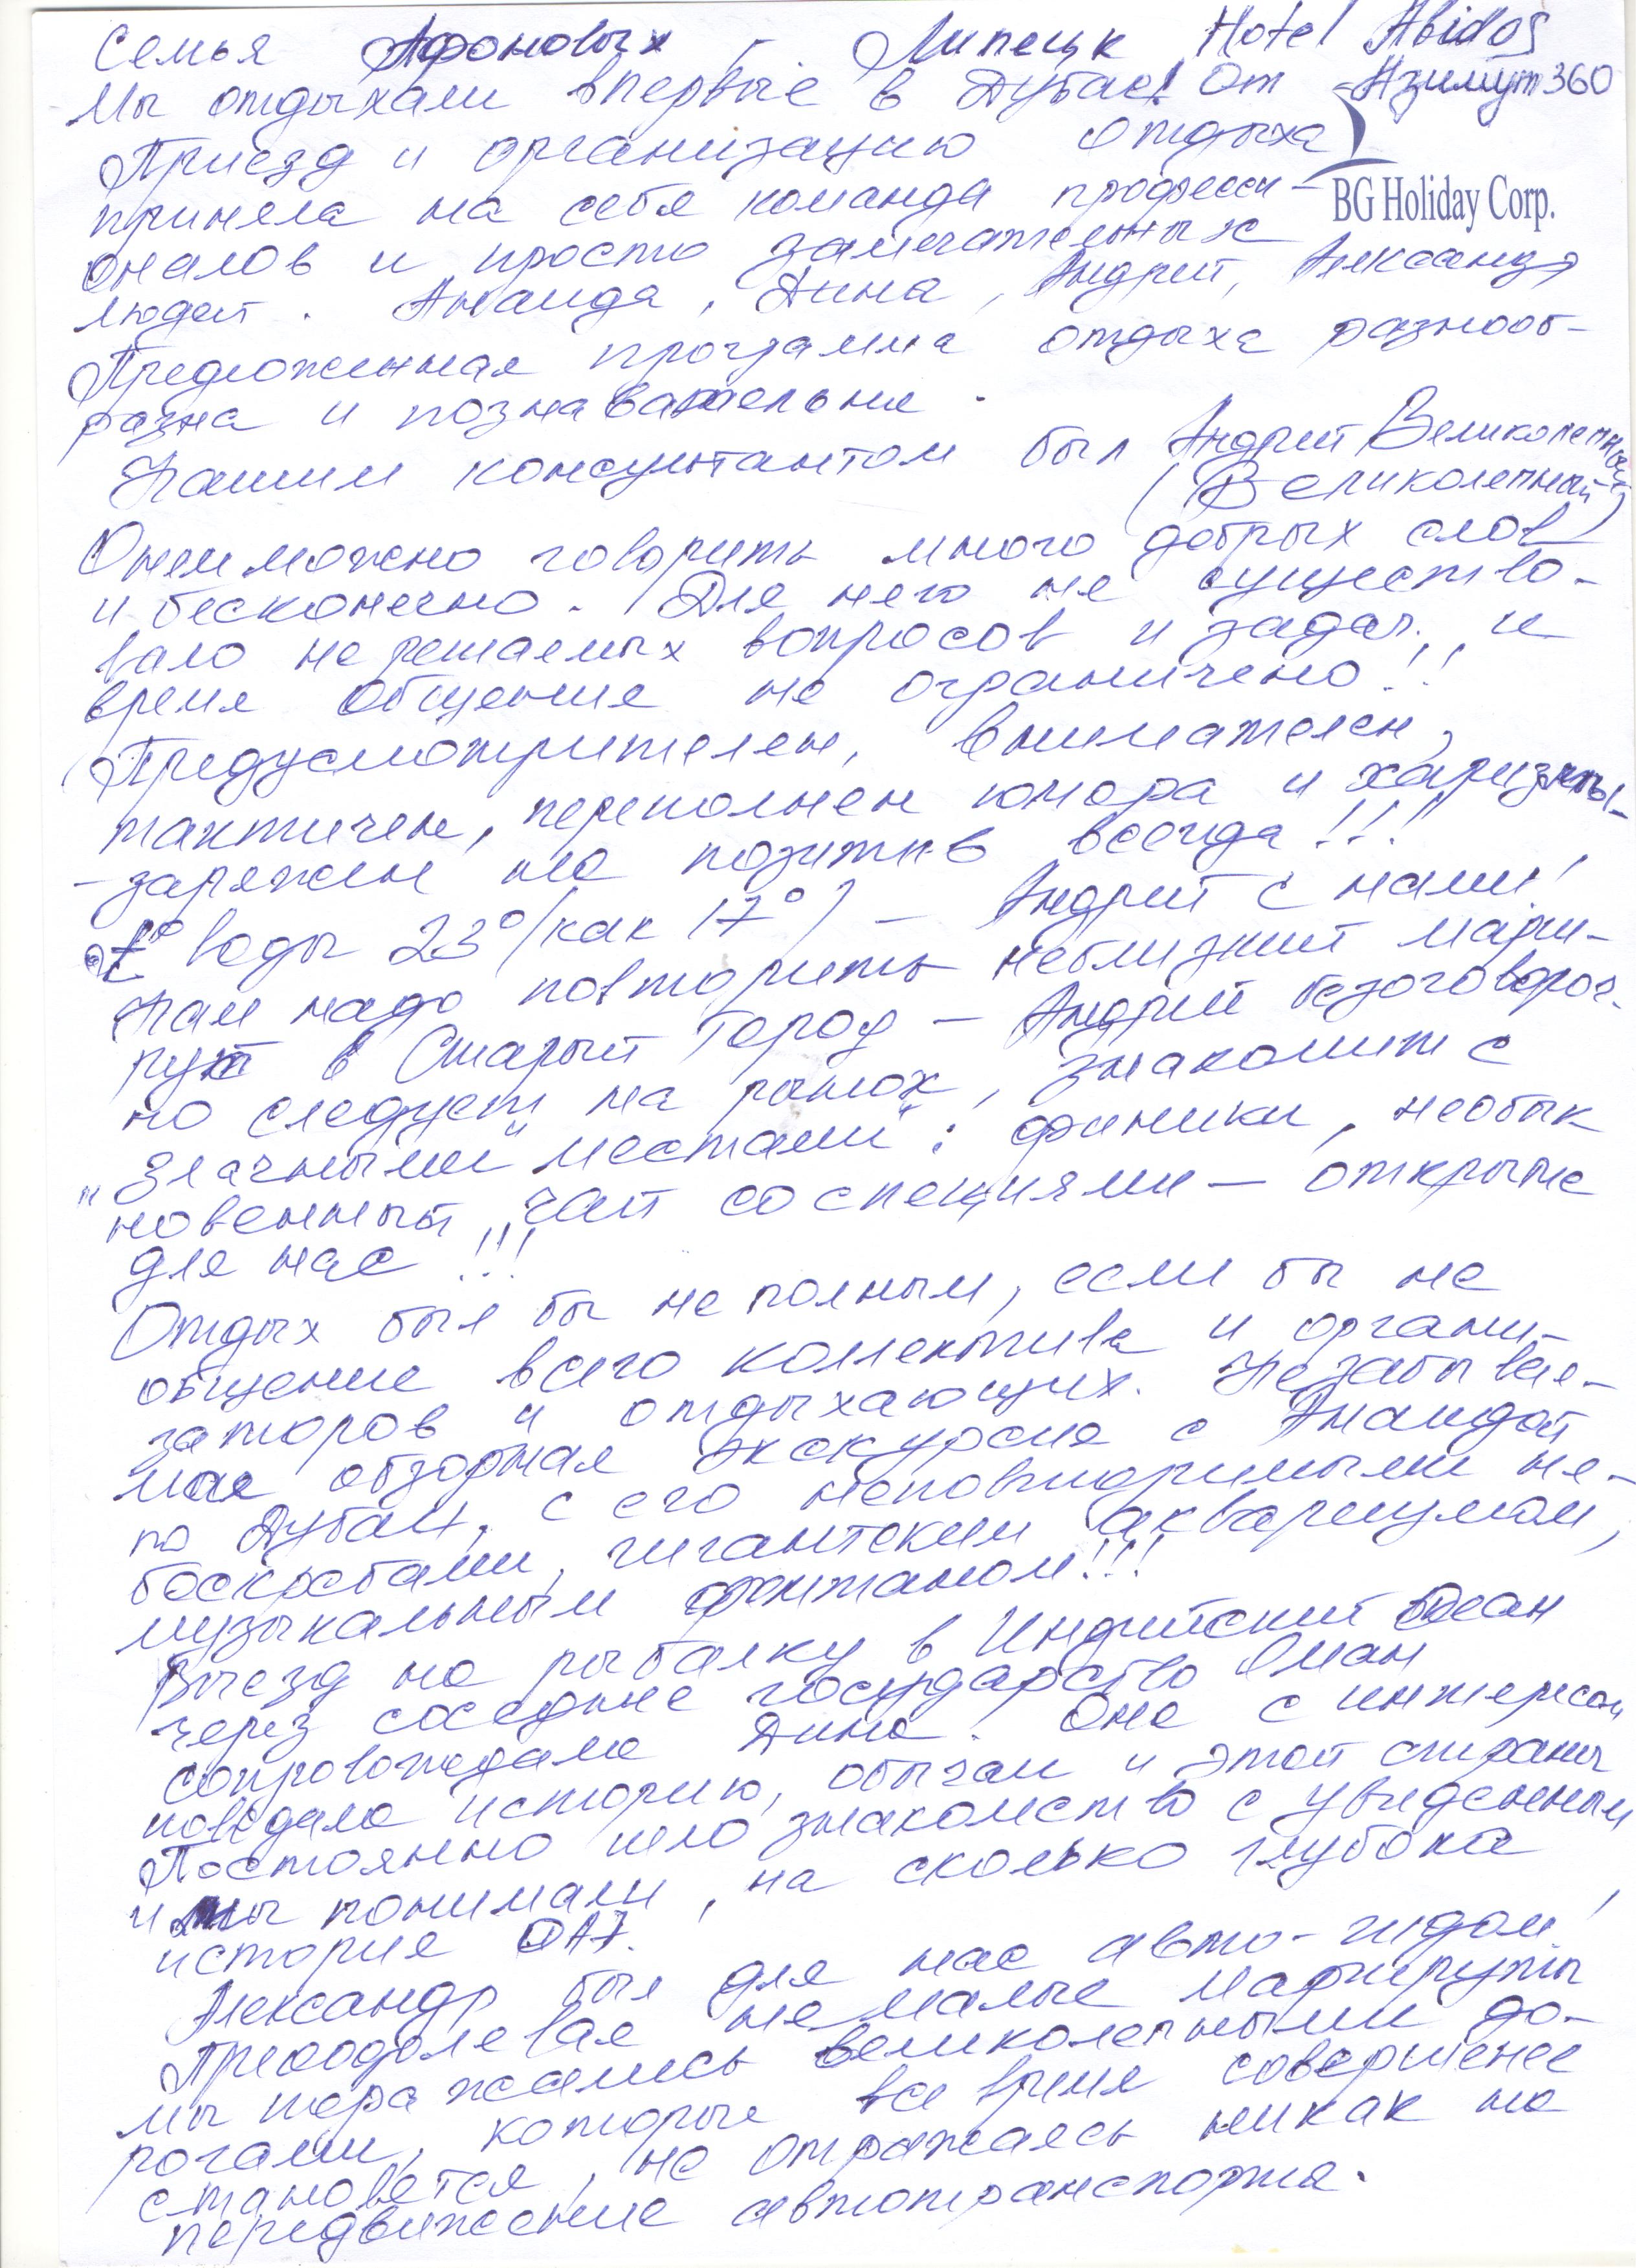 Семья Афоновых, - Липецк Hotel Abidos
Мы отдыхали впервые в Дубае! От Азимут 360
Приезд и организацию отдыха
приняла на себя команда професси-
BG Holiday Corp.
оналов и просто замечательных
людей. Амаида, Дина, Андрей, Александр
Предложенная программа отдыха разнооб-
разна и познавательна.
Нашим консультантом был Андрей Великолепный
(Великолепный)
О нем можно говорить много добрых слов
и бесконечно. Для него не существо-
вало не решаемых вопросов и задач, и
время общения не ограничено!!
Предусмотрителен, внимателен,
тактичен, переполнен юмора и харизмы-
- заряжен на позитив всегда!!!
t° воды 23° (как 17°) - Андрей с нами!
Нам надо повторить неблизкий марш-
рут в Старый Город - Андрей безоговороч-
но следует на рынок, знакомит с
"злачными" местами: финики, необык
новенный чай со специями - открытие
для нас!!!
Отдых был бы не полным, если бы не
общение всего коллектива и органи-
заторов и отдыхающих. Незабывае-
мая обзорная экскурсия с Амаидой
по Дубаи, с его неповторимыми не-
боскребами, гигантским аквариумом,
музыкальным фонтаном!!!
Выезд на рыбалку в Индийский Океан
через соседнее государство Оман
сопровождала Дина. Она с интересом
поведала историю, обычаи и этой страны
Постоянно шло знакомство с увиденным
и мы понимали, на сколько глубока
история ОАЭ.
Александр был для нас авто-гидом!
Преоодолевая не малые маршруты
мы поражались великолепными до-
рогами, которые все время совершенее
становятся, не отражаясь никак на
передвижение автотранспорта.